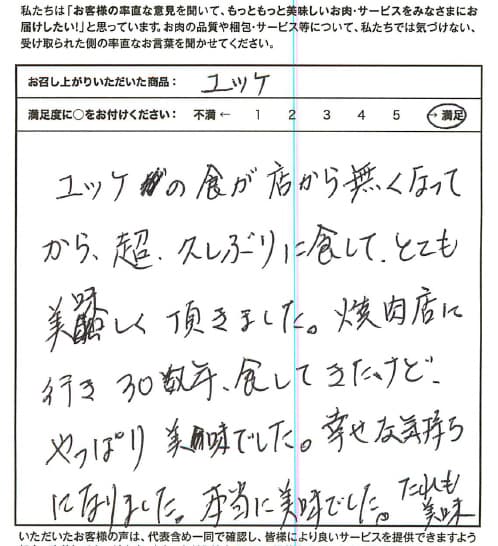 私たちは「お客様の率直な意見を聞いて、もっともっと美味しいお肉・サービスをみなさまにお
届けしたい！」と思っています。お肉の品質や梱包・サービス等について、私たちでは気づけない、
受け取られた側の率直なお言葉を聞かせてください。
お召し上がりいただいた商品： ユッケ
満足度に○をお付けください： 不満 ← 1 2 3 4 5 → 満足
ユッケの食が店から無くなって
から、超、久しぶりに食して、とても
美味しく頂きました。焼肉店に
行き30数年、食してきたけど、
やっぱり美味でした。幸せな気持ち
になりました。本当に美味でした。たれも
美味
いただいたお客様の声は、代表含め一同で確認し、皆様により良いサービスを提供できますよう